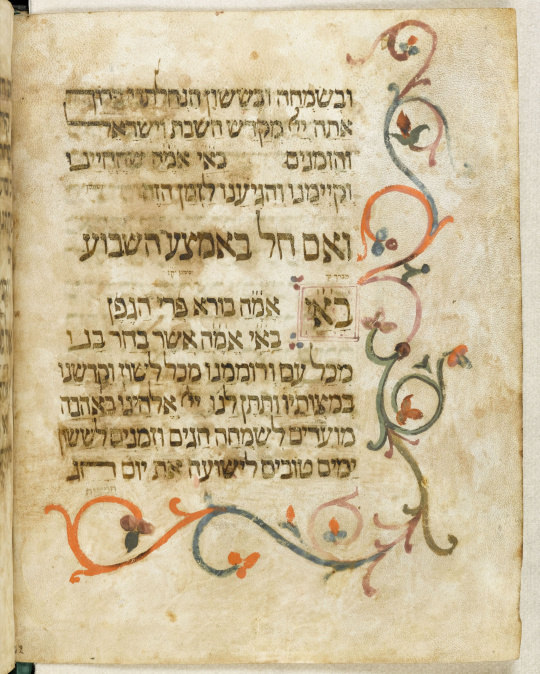 ובשמחה ובששון הנחלתנו ברוך
אתה ייי מקדש השבת וישראל
והזמנים באי אמה שהחיינו
וקיימנו והגיענו לזמן הזה
ואם חל באמצע השבוע
באי אמה בורא פרי הגפן
באי אמה אשר בחר בנו
מכל עם ורוממנו מכל לשון וקדשנו
במצותיו ותתן לנו ייי אלהינו באהבה
מועדים לשמחה חגים וזמנים לששון
ימים טובים לישועה את יום חג